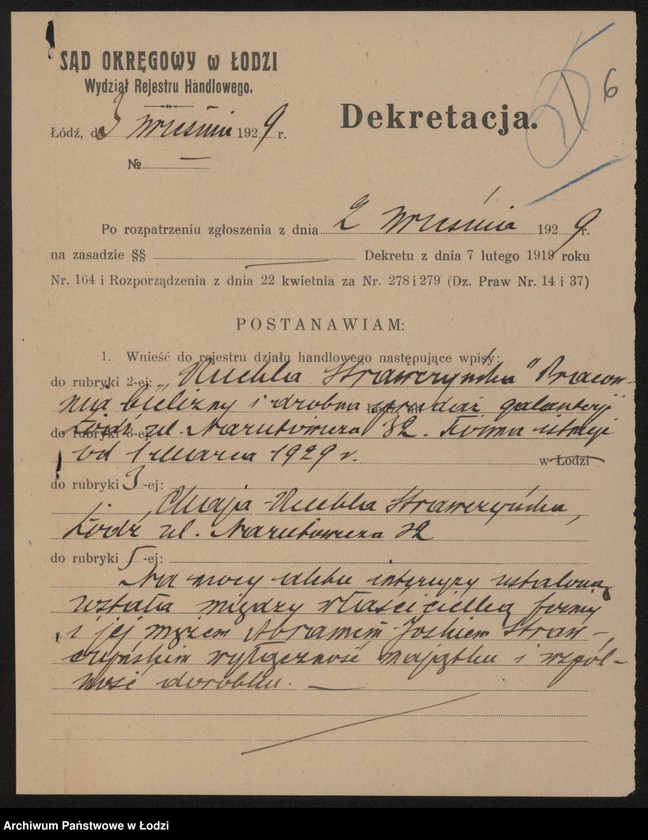 SĄD OKRĘGOWY w ŁODZI
Wydział Rejestru Handlowego.
Łódź, d. 3 września 1929 r.
№ —
Dekretacja.
6
Po rozpatrzeniu zgłoszenia z dnia 2 września 1929 r.
na zasadzie §§ — Dekretu z dnia 7 lutego 1919 roku
Nr. 164 i Rozporządzenia z dnia 22 kwietnia za Nr. 278 i 279 (Dz. Praw Nr. 14 i 37)
POSTANAWIAM:
1. Wnieść do rejestru działu handlowego następujące wpisy:
do rubryki 2-ej: „Ruchla Strawczyńska" Pracow-
nia bielizny i drobna sprzedaż galanterji
Łódź ul. Narutowicza 32. Firma istnieje
od 1 marca 1929 r. w Łodzi
do rubryki 3-ej:
Chaja-Ruchla Strawczyńska,
Łódź ul. Narutowicza 32
do rubryki 5-ej:
Na mocy aktu intercyzy ustaloną
została między właścicielką firmy
i jej mężem Abramem-Joskiem Straw-
czyńskim wyłączność majątku i wspól-
ność dorobku. —
Archiwum Państwowe w Łodzi